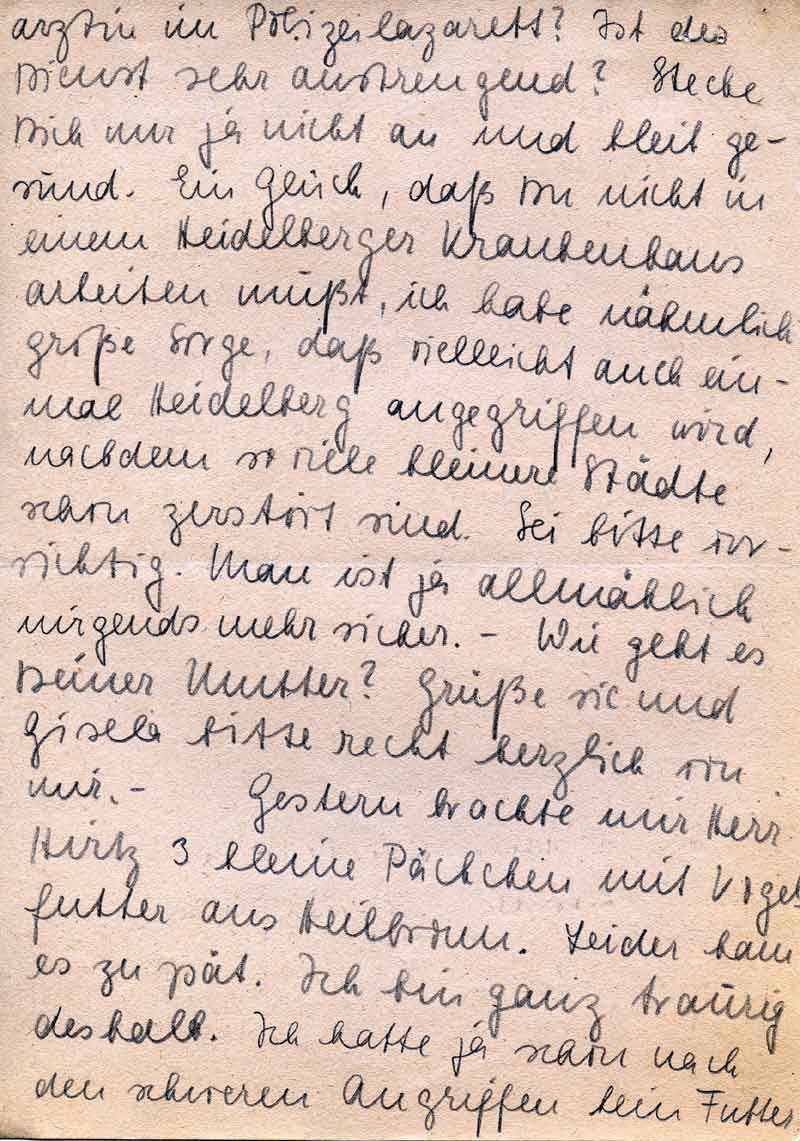 ärztin im Polizeilazarett? Ist der
Dienst sehr anstrengend? Stecke
Dich nur ja nicht an und bleib ge-
sund. Ein Glück, daß Du nicht in
einem Heidelberger Krankenhaus
arbeiten mußt, ich habe nähmlich
große Sorge, daß vielleicht auch ein-
mal Heidelberg angegriffen wird,
nachdem so viele kleinere Städte
schon zerstört sind. Sei bitte vor-
sichtig. Man ist ja allmählich
nirgends mehr sicher. - Wie geht es
Deiner Mutter? Grüße sie und
Gisela bitte recht herzlich von
mir. - Gestern brachte mir Herr
Hirtz 3 kleine Päckchen mit Vogel
futter aus Heilbronn. Leider kam
es zu spät. Ich bin ganz traurig
deshalb. Ich hatte ja schon nach
den schweren Angriffen kein Futter